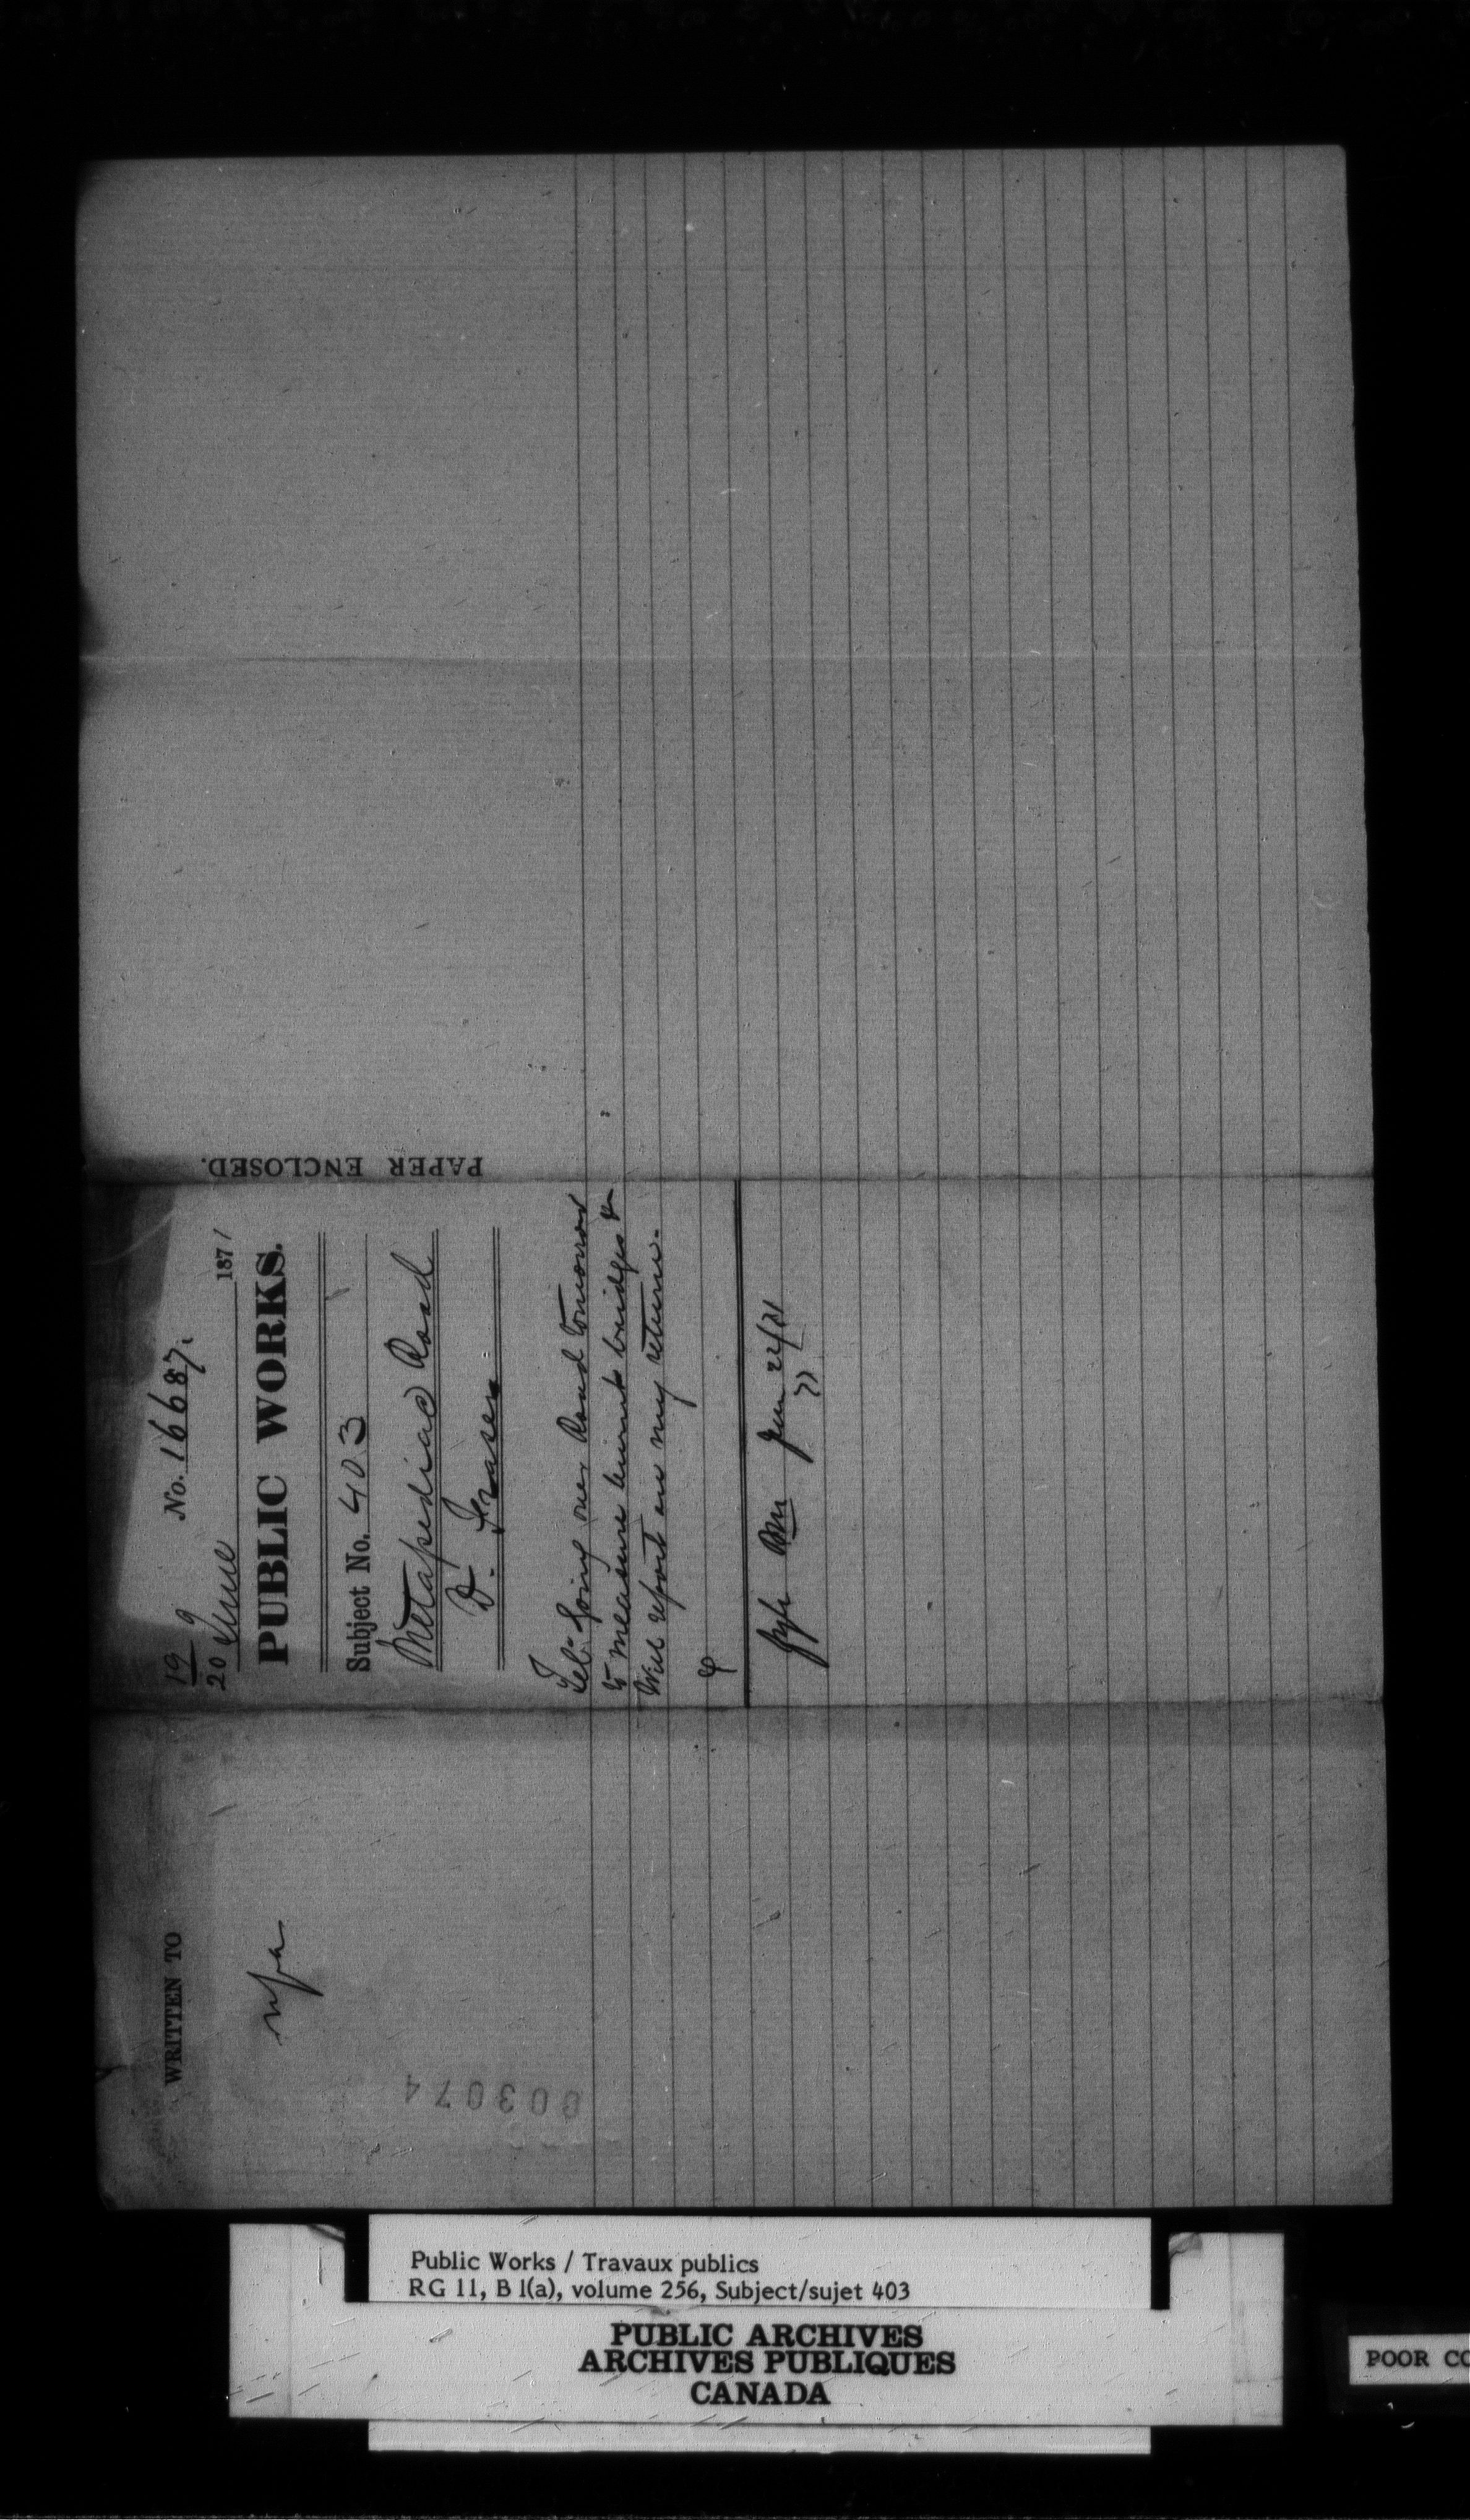 WRITTEN TO
nfa
003074
No. 16687.
19
20 June 1871
PUBLIC WORKS.
Subject No. 403
Metapediac Road
D. Fraser
Tel: Going over Road tomorrow
to measure burnt bridges &
Will report on my return.
June 22/71
PAPER ENCLOSED.
Public Works / Travaux publics
RG 11, B 1(a), volume 256, Subject/sujet 403
PUBLIC ARCHIVES
ARCHIVES PUBLIQUES
CANADA
POOR CO